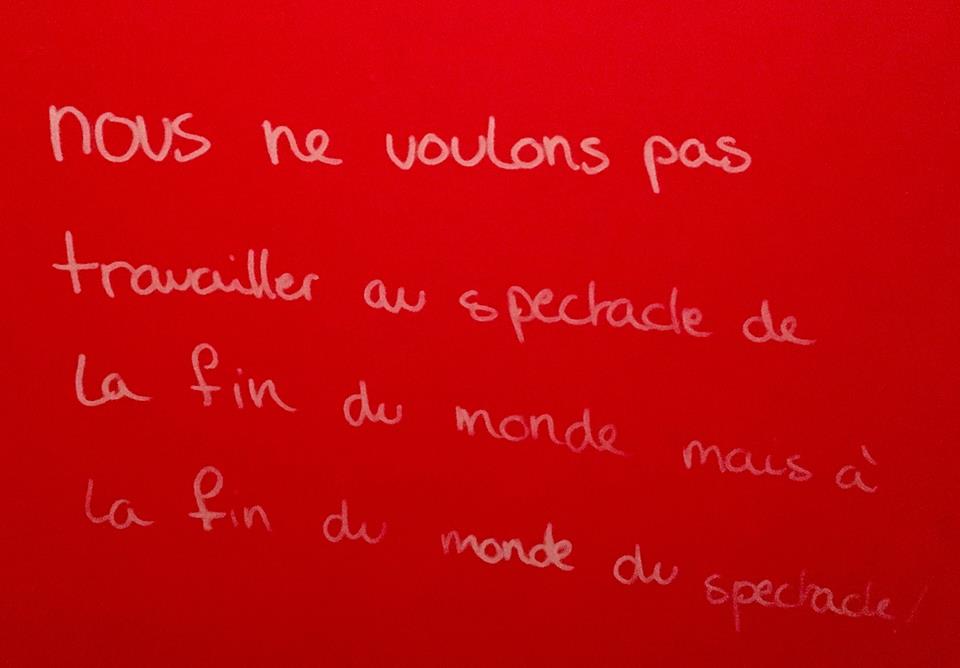 nous ne voulons pas
travailler au spectacle de
la fin du monde mais à
la fin du monde du spectacle!